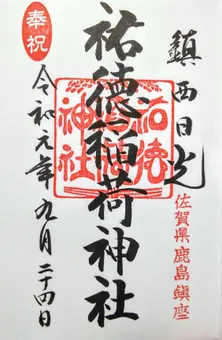 鎮西日光
佐賀県鹿島鎮座
祐徳稲荷神社
祐徳
稲荷
神社
奉祝
令和元年九月二十四日